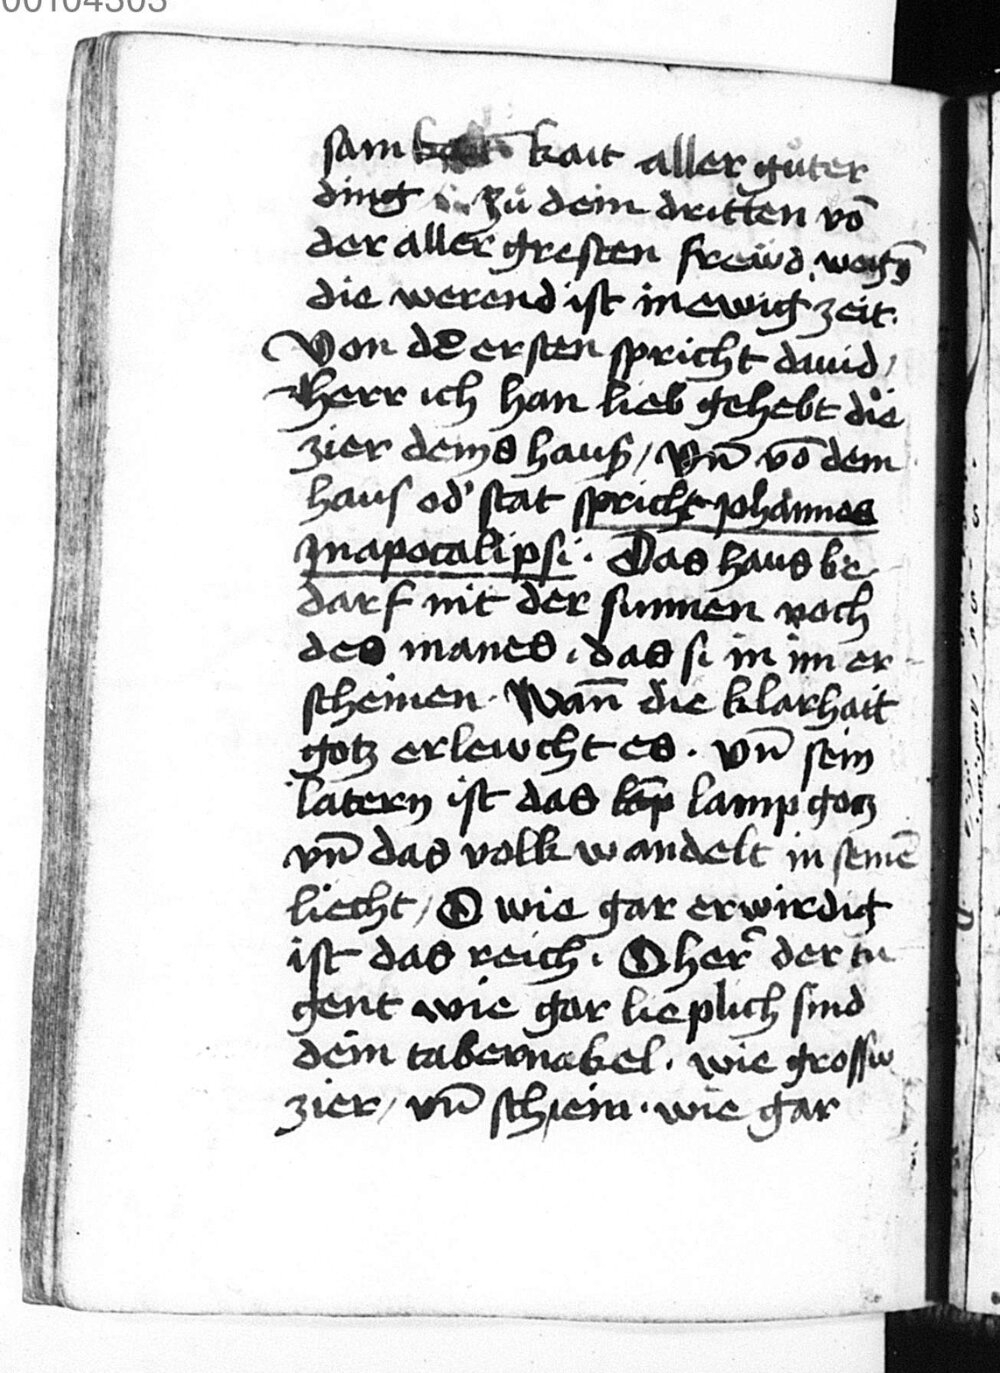 00104303
sam kait aller gůter
ding zů dem dritten vō
der aller gresten frewd wegē
die werend ist in ewig zeit.
Von dē ersten spricht dauid /
Herr ich han lieb gehebt die
zier deins hauß / Vn̄ vō dem
haus od' stat spricht Johannes
In apocalipsi. Das haus be
darf nit der sunnen noch
des manes. das si in im er
scheinen. Wan̄ die klarhait
gotz erlewcht es. vn̄ sein
latern ist das lamp gotz
vn̄ das volk wandelt in seinē
liecht / O wie gar erwirdig
ist das reich. O her̄ der tu
gent wie gar lieplich sind
dein tabernakel. wie grossiv
zier / vn̄ schein. wie gar